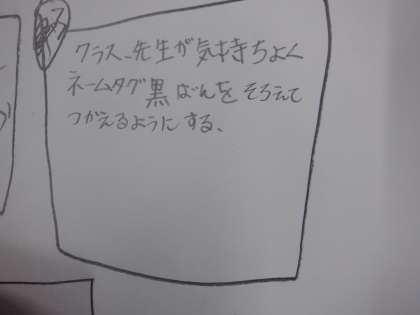 クラス、先生が気持ちよく
ネームタグ黒ばんをそろえて
つかえるようにする、